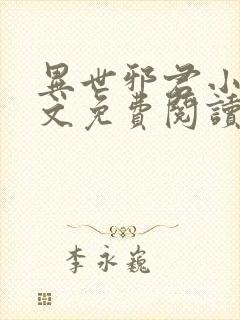 異世邪君小
文免費閱讀
李永巍